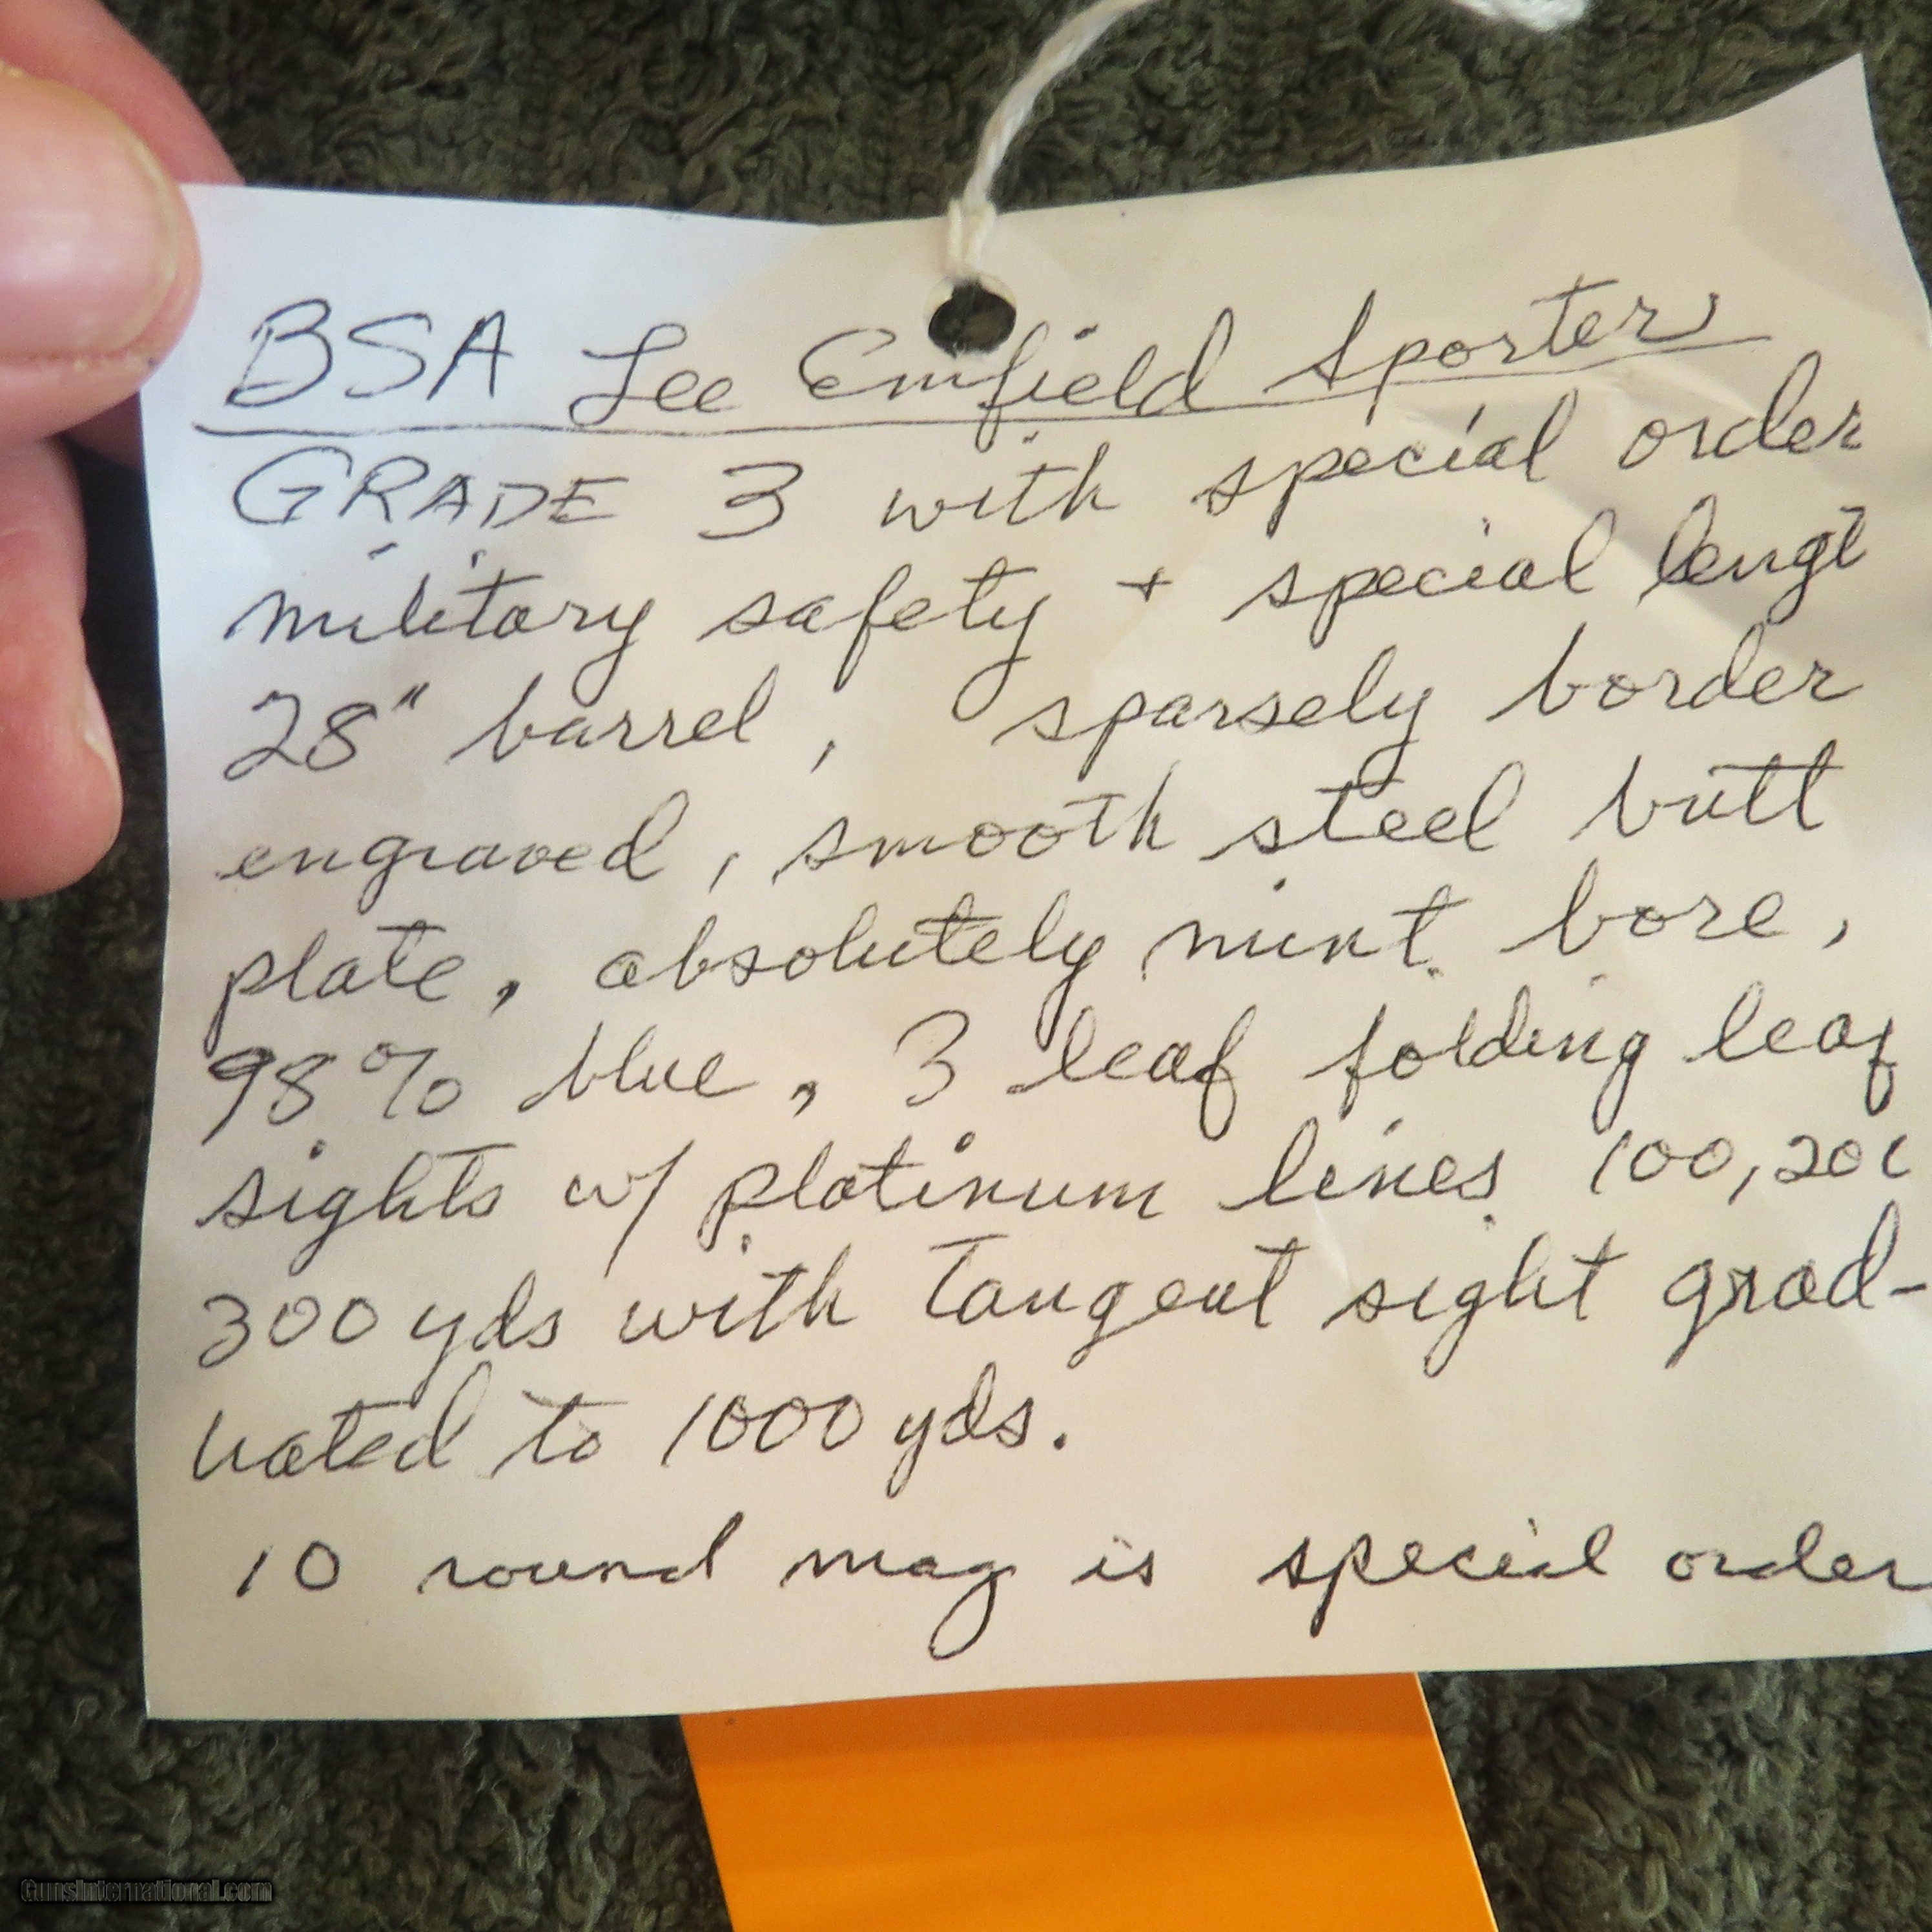 BSA Lee Enfield Sporter
GRADE 3 with special order
military safety + special lengt
28" barrel, sparsely border
engraved, smooth steel butt
plate, absolutely mint bore,
98% blue, 3 leaf folding leaf
sights w/ platinum lines 100, 200
300 yds with Tangent sight grad-
uated to 1000 yds.
10 round mag is special order
GunsInternational.com